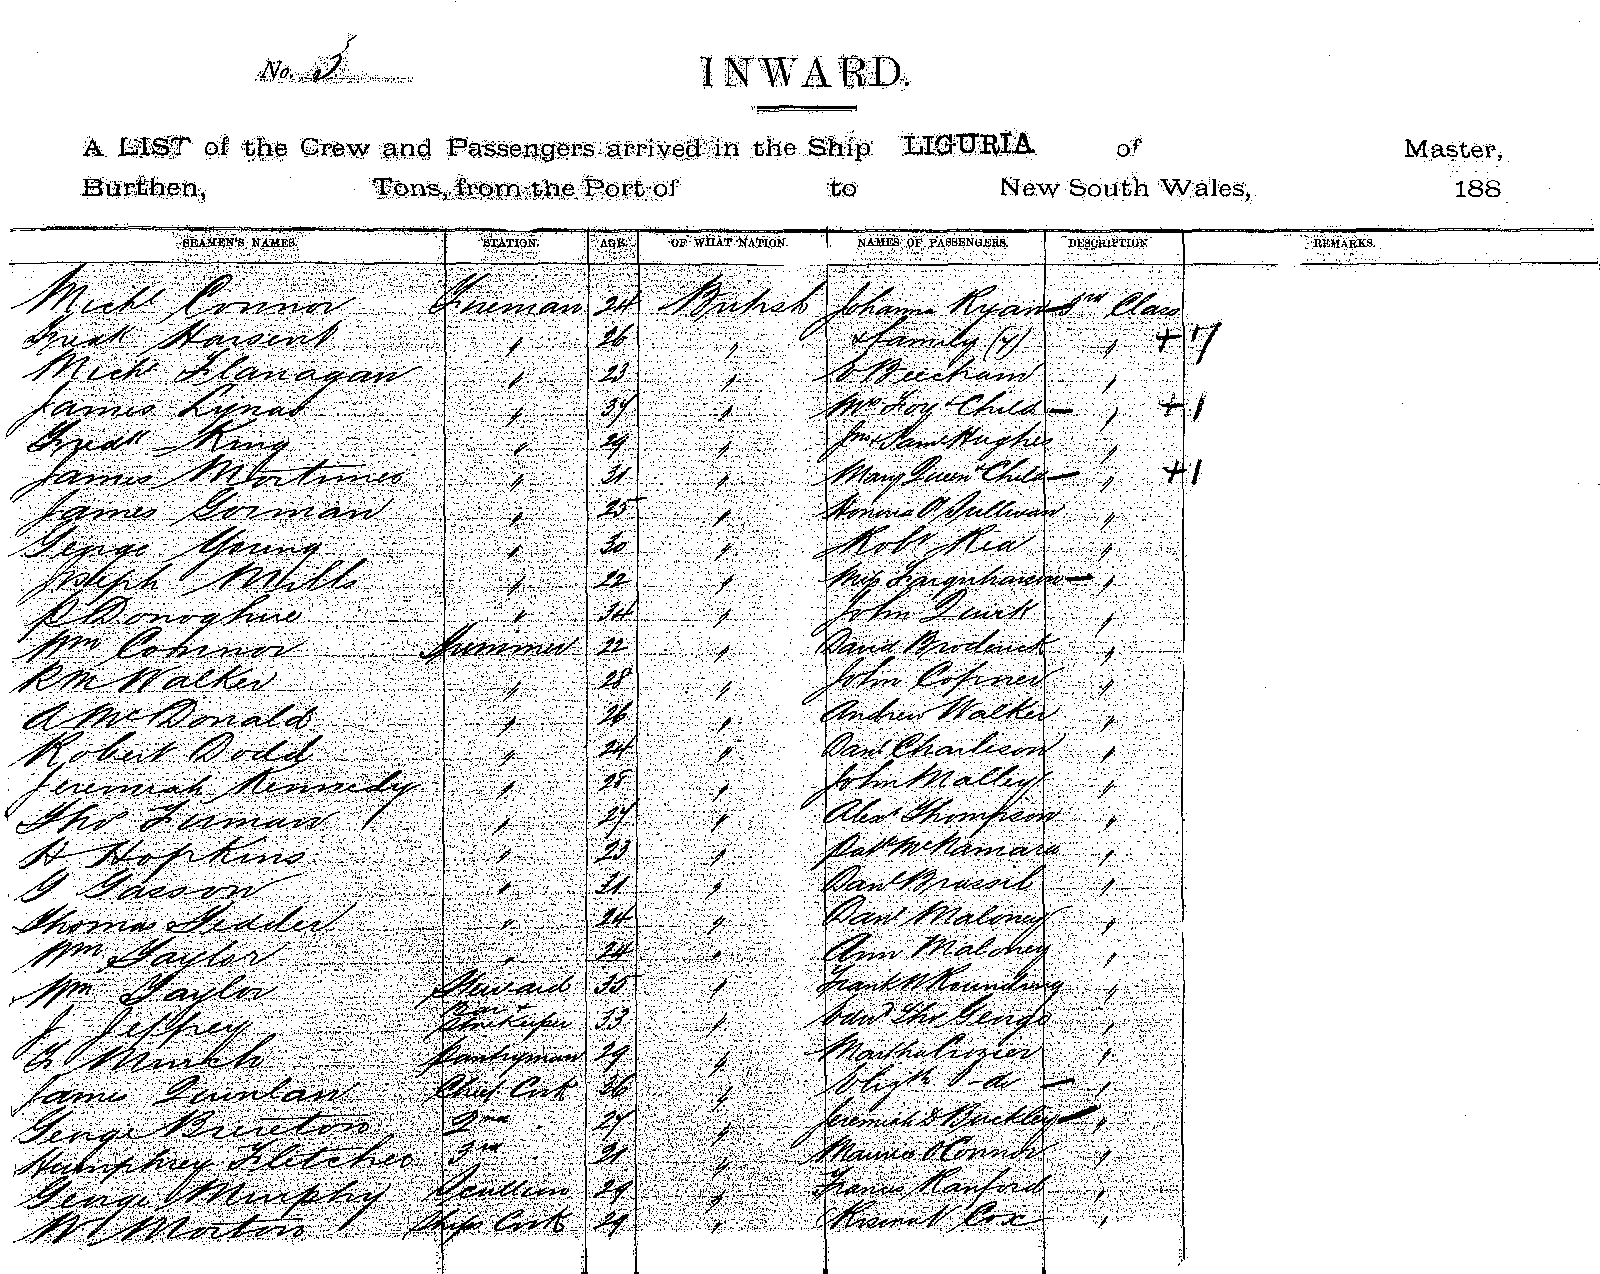 No. 3
INWARD.
A LIST of the Crew and Passengers arrived in the Ship LIGURIA of Master,
Burthen, Tons, from the Port of to New South Wales, 188
SEAMEN'S NAMES. STATION. AGE. OF WHAT NATION. NAMES OF PASSENGERS. DESCRIPTION REMARKS.
Michl Connor Fireman 24 British Johanna Ryan 3rd Class
Fredk Harsent " 26 " & family (7) " +7
Michl Flanagan " 23 " Beecham "
James Lynas " 37 " Mrs Foy & Child " +1
Fredk King " 29 " Hughes "
James Mortimer " 31 " Mary Queen & Child " +1
James Gorman " 25 " Honora O'Sullivan "
George Young " 30 " Robt Rea "
Joseph Mills " 22 " Miss Farquharson "
P Donoghue " 34 " John Quirk "
Wm Connor Trimmer 22 " David Broderick "
R M Walker " 28 " John "
A McDonald " 26 " Andrew Walker "
Robert Dodd " 24 " Danl Charleson "
Jeremiah Kennedy " 28 " John Malley "
Thos Firman " 27 " Alexr Thompson "
H Hopkins " 23 " Patk McNamara "
G Gasson " 31 " Danl Brassil "
Thomas Tedder " 24 " Danl Maloney "
Wm Taylor " 24 " Ann Maloney "
Wm Taylor Steward 35 " Frank W Rounding "
J Jeffrey Bar & Storekeeper 33 " Edwd Thos George "
E March Pantryman 29 " Martha Crozier "
James Quinlan Chief Cook 36 " Elizth "
George Brereton 2nd " 27 " Jeremiah D Buckley "
Humphrey Fletcher 3rd " 21 " Maurice O'Connor "
George Murphy Scullion 29 " Francis Ranford "
W Morton Ships Cook 29 " Cox "